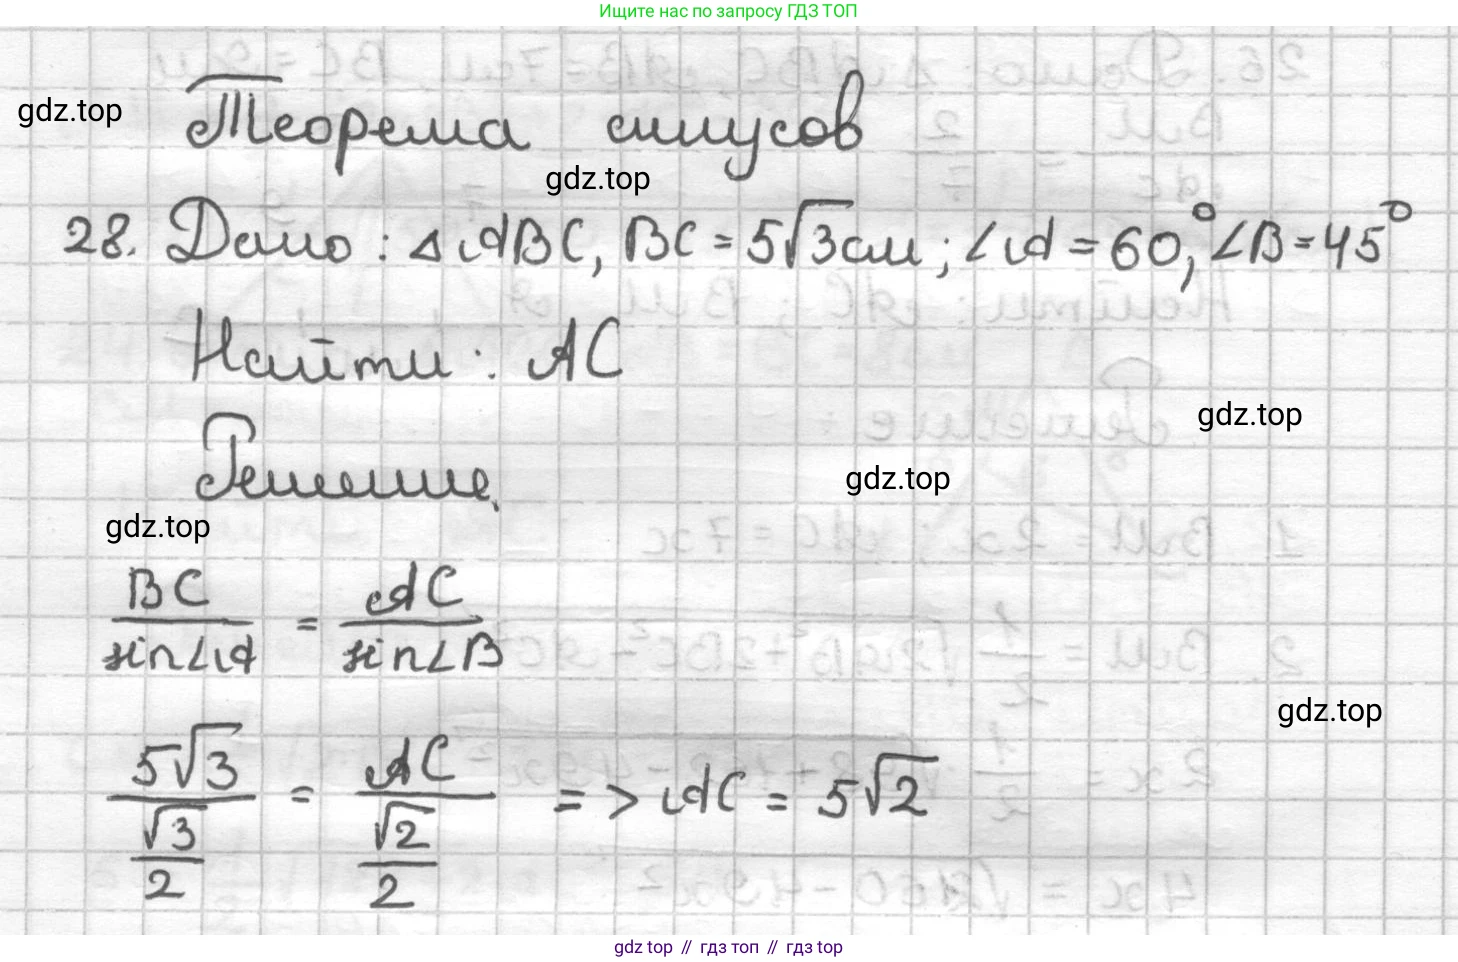 Ищите нас по запросу ГДЗ ТОП
Теорема синусов
gdz.top
gdz.top
28. Дано: ΔABC, BC = 5√3 см; ∠A = 60°, ∠B = 45°
Найти: AC
gdz.top
Решение.
gdz.top
gdz.top
BC/sin∠A = AC/sin∠B
gdz.top
5√3/(√3/2) = AC/(√2/2) => AC = 5√2
gdz top // гдз топ // гдз top